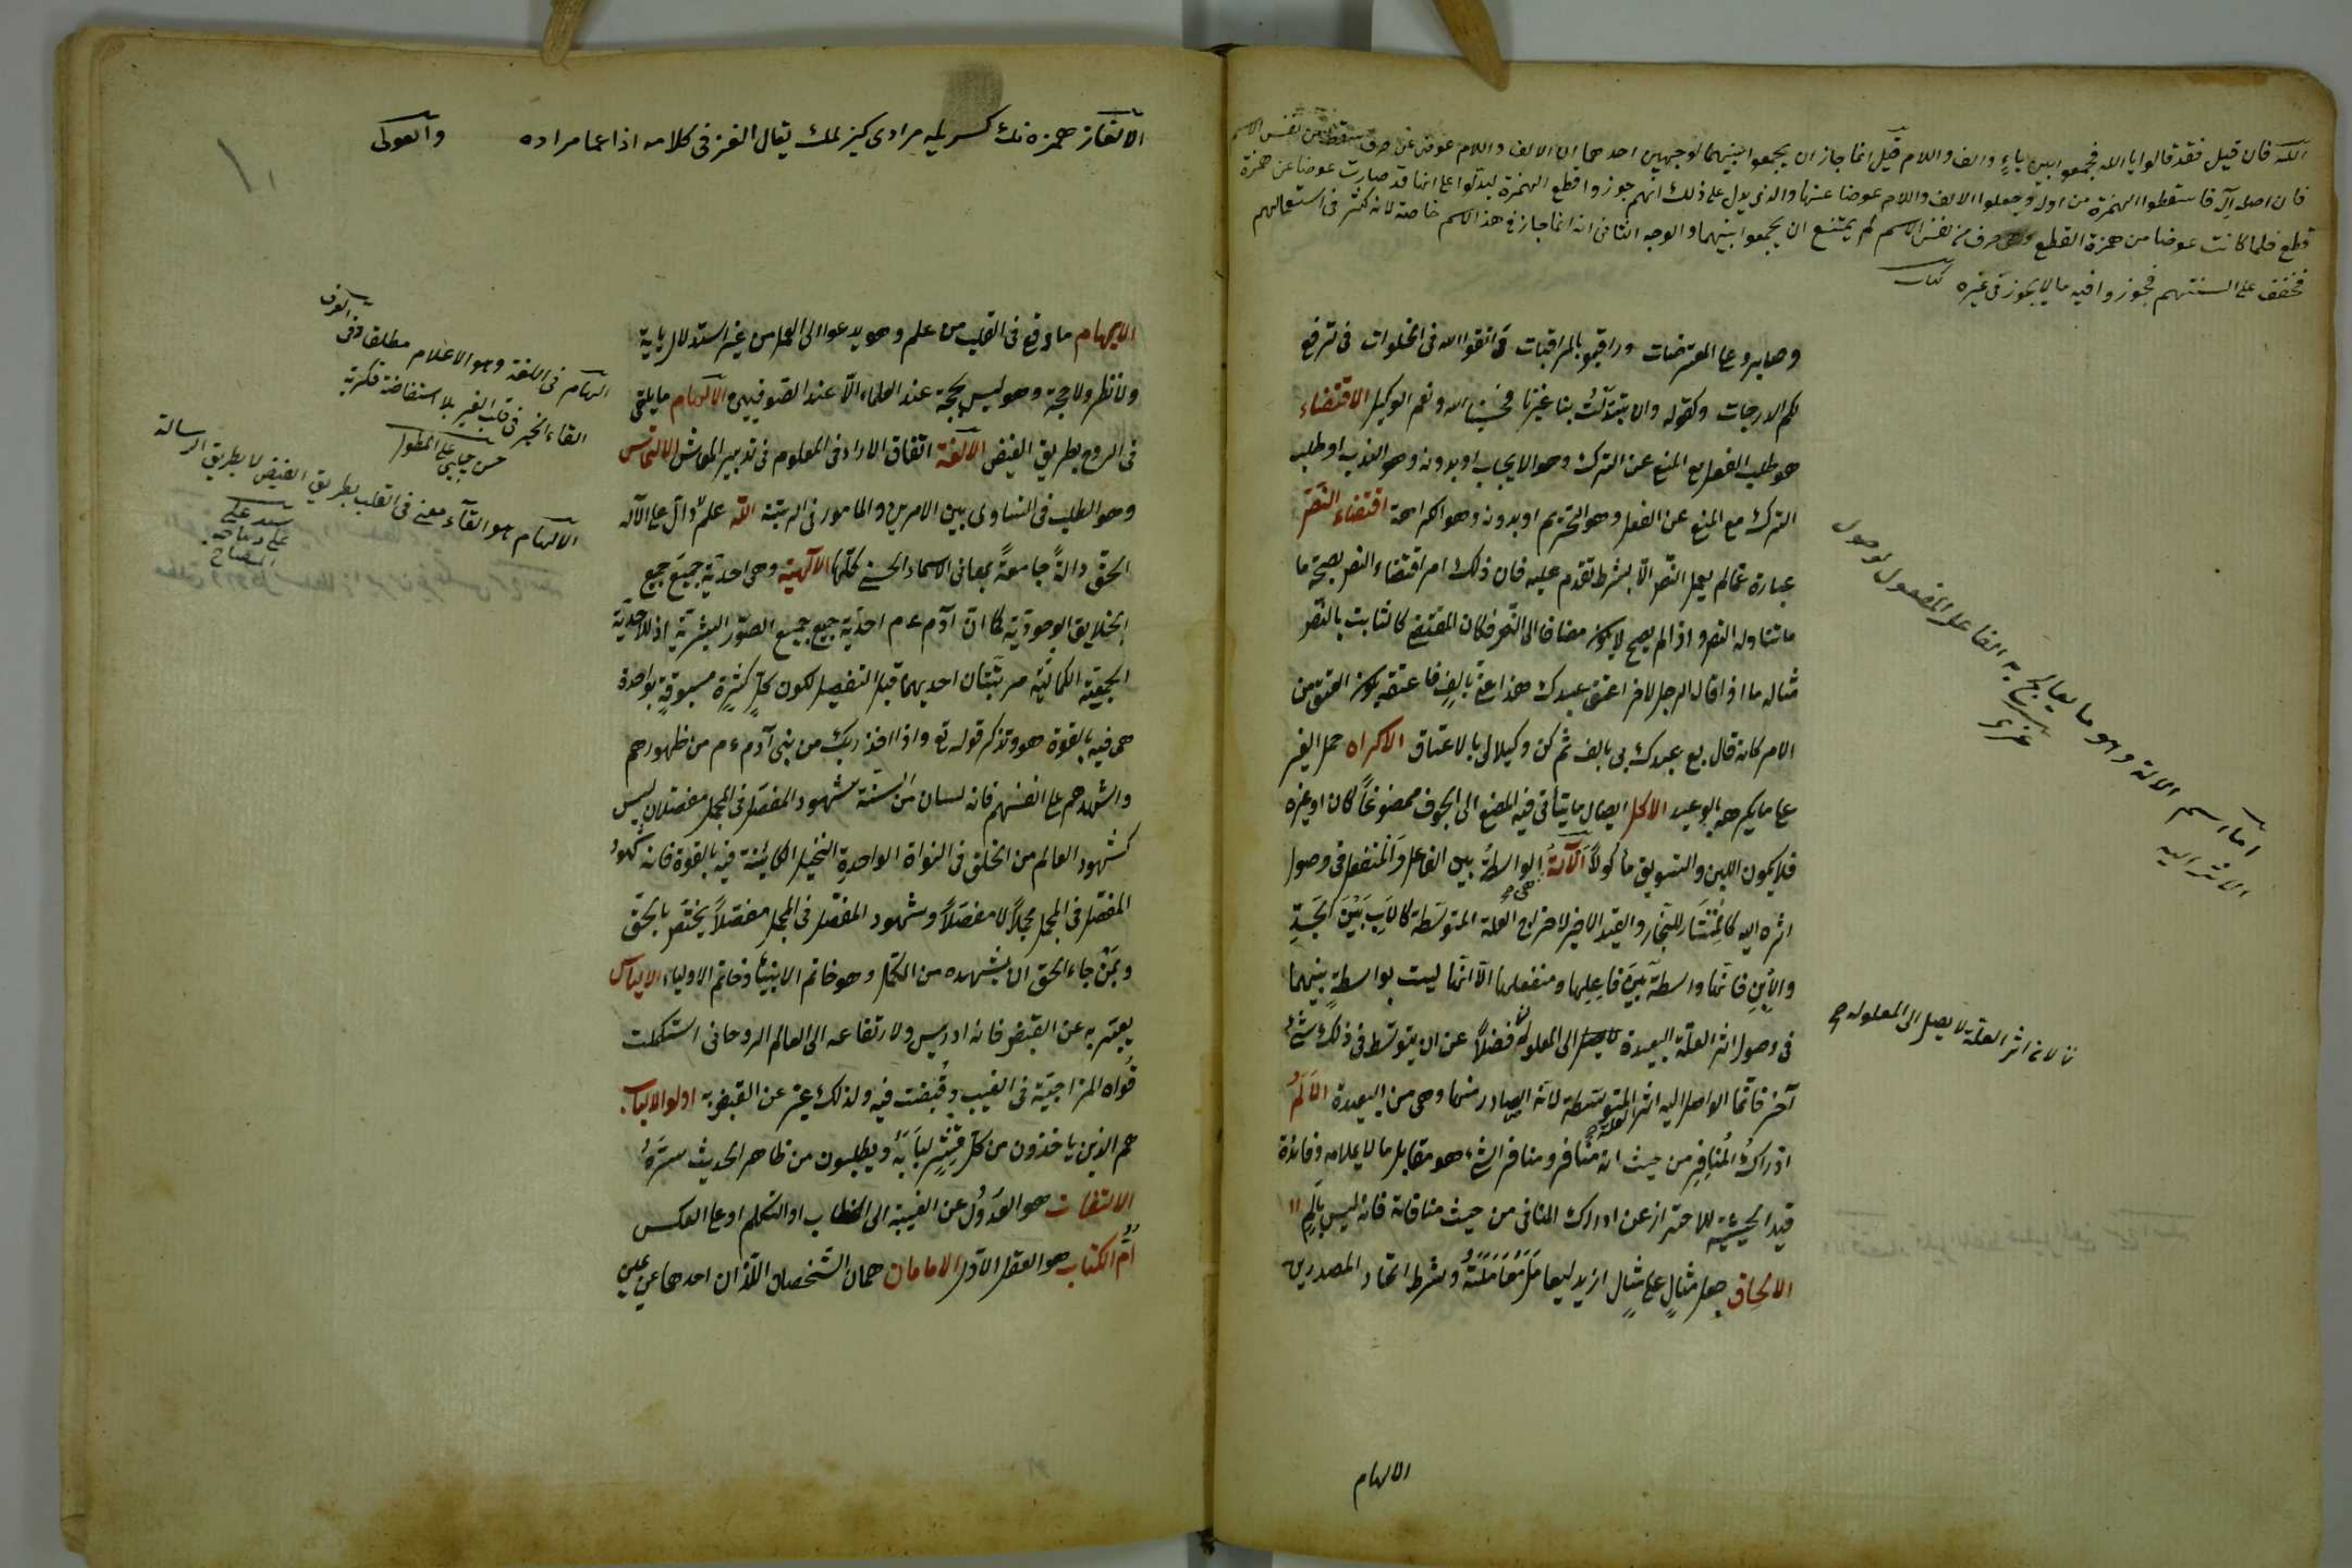 الله فان قيل فقد قالوا يا الله فجمعوا بين ياء والف واللام قيل انما جاز ان يجمعوا بينهما لوجهين احدهما ان الالف واللام عوض عن حرف سقط من نفس الاسم
فان اصله آله فاسقطوا الهمزة من اوله وجعلوا الالف واللام عوضا عنها والذى يدل على ذلك انهم جوزوا قطع الهمزة ليدلوا على انها قد صارت عوضا عن همزة
قطع فلما كانت عوضا من همزة القطع وهى حرف من نفس الاسم لم يمتنع ان يجمعوا بينهما والوجه الثانى انه انما جاز فى هذا الاسم خاصة لانه كثر فى استعمالهم
فخفف على السنتهم فجوزوا فيه ما لا يجوز فى غيره
وصابروا على المعترضات ورابطوا بالمراقبات واتقوا الله فى الخلوات فى ترفع
لكم الدرجات وكقوله وان تبدلت بنا غيرنا فحسبنا الله ونعم الوكيل الاقتضاء
هو طلب الفعل مع المنع عن الترك وهو الايجاب او بدونه وهو الندب او طلب
الترك مع المنع عن الفعل وهو التحريم او بدونه وهو الكراهة اقتضاء النص
عبارة عما لم يعمل النص الا بشرط تقدم عليه فان ذلك امر اقتضاه النص بصحة ما
ما تناوله النص واذا لم يصح لا يكون مضافا الى النص فكان المقتضى كالثابت بالنص
مثاله ما اذا قال الرجل لاخر اعتق عبدك هذا عنى بالف فاعتقه يكون العتق من
الامر كانه قال بع عبدك لى بالف ثم كن وكيلا لى بالاعتاق الاكراه حمل الغير
على ما يكرهه بالوعيد الاكل ايصال ما يتأتى فيه المضغ الى الجوف ممضوغا كان او غيره
فلا يكون اللبن والسويق مأكولا الآلة الواسطة بين الفاعل والمنفعل فى وصول
اثره اليه كالمنشار للنجار والقيد الاخير لاخراج العلة المتوسطة كالاب بين الجد
والابن فانها واسطة بين فاعلها ومنفعلها الا انها ليست بواسطة بينهما
فى وصول اثر العلة البعيدة الى المعلول فضلا عن ان يتوسط فى ذلك شئ
آخر فانما الواصل اليه اثر المتوسطة لانه الصادر منها وهى من البعيدة الالم
ادراك المنافر من حيث انه منافر ومنافر الشئ هو مقابل ما لا يلائمه وفائدة
قيد الحيثية للاحتراز عن ادراك المنافى من حيث منافاته فانه ليس بالم
الالحاق جعل مثال على مثال ازيد ليعامل معاملته وشرط اتحاد المصدرين
اما اسم الالة وهو ما يعالج به الفاعل المفعول لوصول
الاثر اليه
لانه اثر العلة لا يصل الى المعلول
الالهام
الالغاز همزه نك كسريله مرادى كيزلمك يقال الغز فى كلامه اذا عما مراده
الايهام ما وقع فى القلب من علم وهو يدعوا الى العمل من غير استدلال باية
ولا نظر ولا حجة وهو ليس بحجة عند العلماء الا عند الصوفيين الالهام ما يلقى
فى الروع بطريق الفيض الالفة اتفاق الاراء فى المعلوم فى تدبير المعاش الالتماس
وهو الطلب فى التساوى بين الامرين والمأمور فى الرتبة الله علم دال على الاله
الحق دالة جامعة بمعانى الاسماء الحسنى كلها الالهية وهى احدية جميع جمع
الخلايق الوجودية كما ان آدم ع م احدية جمع جميع الصور البشرية اذ للاحدية
الجمعية الكمالية مرتبتان احديهما قبل التفصيل لكون كل كثرة مسبوقة بواحدة
هى فيه بالقوة هو وتذكر قوله تع واذا اخذ ربك من بنى آدم ع م من ظهورهم
واشهدهم على انفسهم فانه لسان من السنة شهود المفصل فى المجمل مفصلا ليس
كشهود العالم من الخلق فى النواة الواحدة النخيل الكائنة فيه بالقوة فانه شهود
المفصل فى المجمل مجملا لا مفصلا وشهود المفصل فى المجمل مفصلا يختص بالحق
وبمن جاء الحق ان يشهده من الكمل وهو خاتم الانبياء وخاتم الاولياء الالياس
يعبر به عن القبض فانه ادريس ولارتفاعه الى العالم الروحانى استهلكت
قواه المزاجية فى الغيب وقبضت فيه ولذلك عبر عن القبض به اولوا الالباب
هم الذين ياخذون من كل قشر لبابه ويطلبون من ظاهر الحديث سره
الالتفات هو العدول عن الغيبة الى الخطاب او التكلم او على العكس
ام الكتاب هو العقل الاول الامامان هما الشخصان اللذان احدهما عن يمين
الهام فى اللغة وهو الاعلام مطلقا وفى العرف
القاء الخير فى قلب الغير بلا استفاضة فكرية
حسن چلبى على المطول
الالهام هو القاء معنى فى القلب بطريق الفيض لا بطريق الرسالة